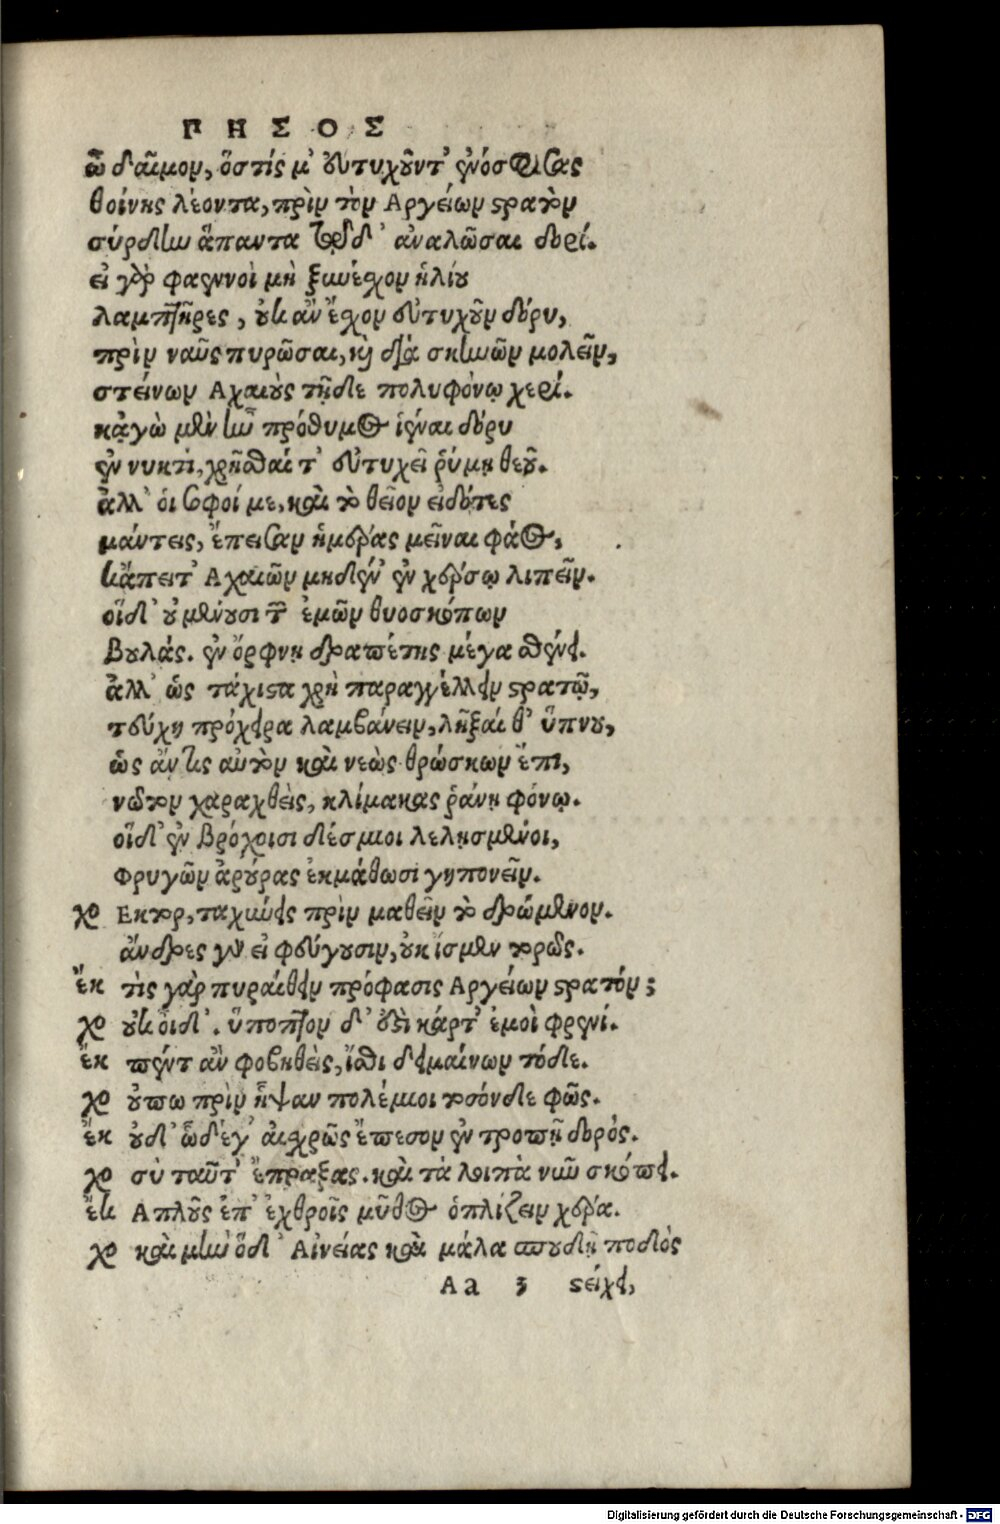 ΡΗΣΟΣ
ὦ δαῖμον, ὅστίς μ' εὐτυχοῦντ' ἐνόσφισας
θοίνης λέοντα, πρὶν τὸν Ἀργείων στρατὸν
σύρδην ἅπαντα τῷδ' ἀναλῶσαι δορί.
εἰ γὰρ φαεννοὶ μὴ ξυνέσχον ἡλίου
λαμπτῆρες, οὐκ ἂν ἔσχον εὐτυχοῦν δόρυ,
πρὶν ναῦς πυρῶσαι, καὶ διὰ σκηνῶν μολεῖν,
στείνων Ἀχαιοὺς τῇδε πολυφόνῳ χερί.
κᾀγὼ μὲν ἦν πρόθυμος ἱέναι δόρυ
ἐν νυκτὶ, χρῆσθαί τ' εὐτυχεῖ ῥύμῃ θεοῦ.
ἀλλ' οἱ σοφοί με, καὶ τὸ θεῖον εἰδότες
μάντεις, ἔπεισαν ἡμέρας μεῖναι φάος,
κἄπειτ' Ἀχαιῶν μηδέν' ἐν χέρσῳ λιπεῖν.
οἵδ' οὐ μένουσι τῶν ἐμῶν θυοσκόπων
βουλάς. ἐν ὄρφνῃ δραπέτης μέγα σθένει.
ἀλλ' ὡς τάχιστα χρὴ παραγγέλλειν στρατῷ,
τεύχη πρόχειρα λαμβάνειν, λῆξαί θ' ὕπνου,
ὡς ἄν τις αὐτὸν καὶ νεὼς θρώσκων ἔπι,
νῶτον χαραχθεὶς, κλίμακας ῥάνῃ φόνῳ.
οἵδ' ἐν βρόχοισι δέσμιοι λελησμένοι,
Φρυγῶν ἀρούρας ἐκμάθωσι γηπονεῖν.
χο Ἕκτορ, ταχύνεις πρὶν μαθεῖν τὸ δρώμενον.
ἄνδρες γὰρ εἰ φεύγουσιν, οὐκ ἴσμεν τορῶς.
ἕκ τὶς γὰρ πυραίθειν πρόφασις Ἀργείων στρατόν;
χο οὐκ οἶδ'. ὕποπτον δ' ἐστὶ κάρτ' ἐμοὶ φρενί.
ἕκ πάντ' ἂν φοβηθεὶς, ἴσθι δειμαίνων τόδε.
χο οὔπω πρὶν ἧψαν πολέμιοι τοσόνδε φῶς.
ἕκ οὐδ' ὧδέ γ' αἰσχρῶς ἔπεσον ἐν τροπῇ δορός.
χο σὺ ταῦτ' ἔπραξας. καὶ τὰ λοιπὰ νῦν σκόπει.
ἕκ Ἁπλοῦς ἐπ' ἐχθροῖς μῦθος ὁπλίζειν χέρα.
χο καὶ μὴν ὅδ' Αἰνείας καὶ μάλα σπουδῇ ποδὸς
Aa 3 στείχει,
Digitalisierung gefördert durch die Deutsche Forschungsgemeinschaft - DFG